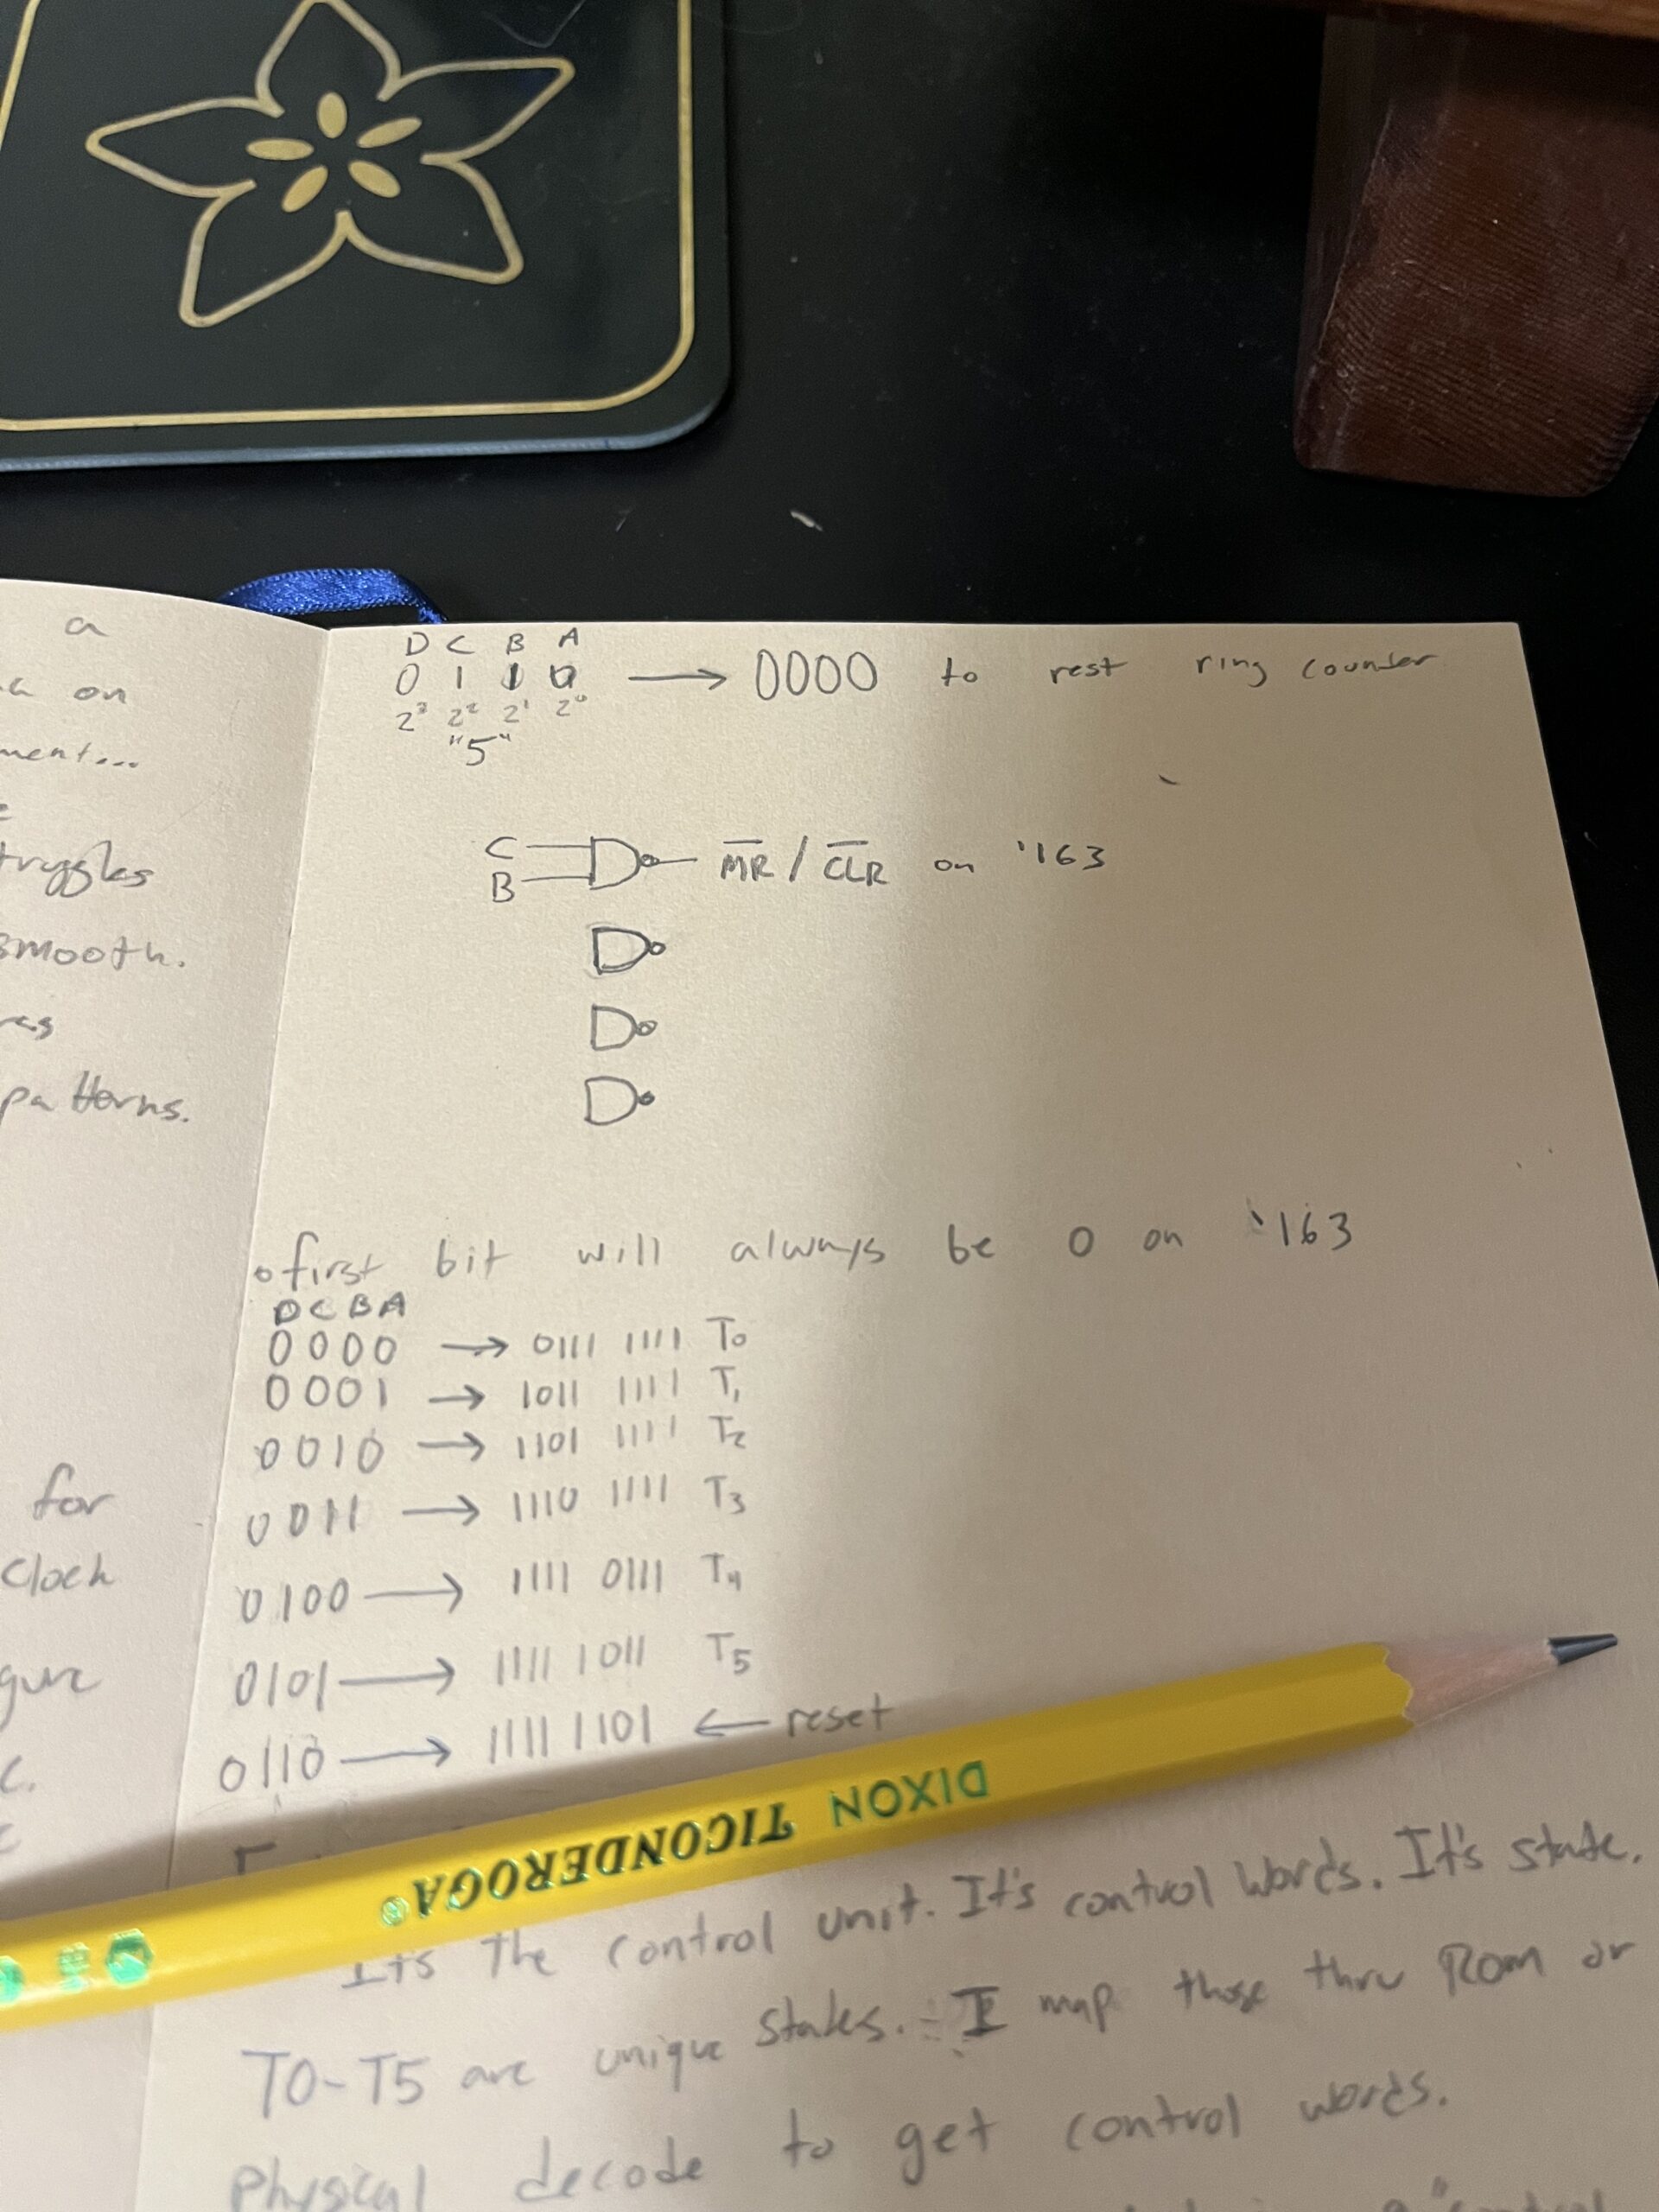 a
on
ment...
smooth.
patterns.
for
Clock
D C B A
0 1 1 0 → 0000 to rest ring counter
2³ 2² 2¹ 2⁰
"5"
C
B
M̅R̅ / C̅L̅R̅ on '163
first bit will always be 0 on '163
D C B A
0 0 0 0 → 0111 1111 T₀
0 0 0 1 → 1011 1111 T₁
0 0 1 0 → 1101 1111 T₂
0 0 1 1 → 1110 1111 T₃
0 1 0 0 → 1111 0111 T₄
0 1 0 1 → 1111 1011 T₅
0 1 1 0 → 1111 1101 ← reset
DIXON TICONDEROGA®
It's the control unit. It's control words. It's state.
T0-T5 are unique states. I map those thru ROM or
physical decode to get control words.